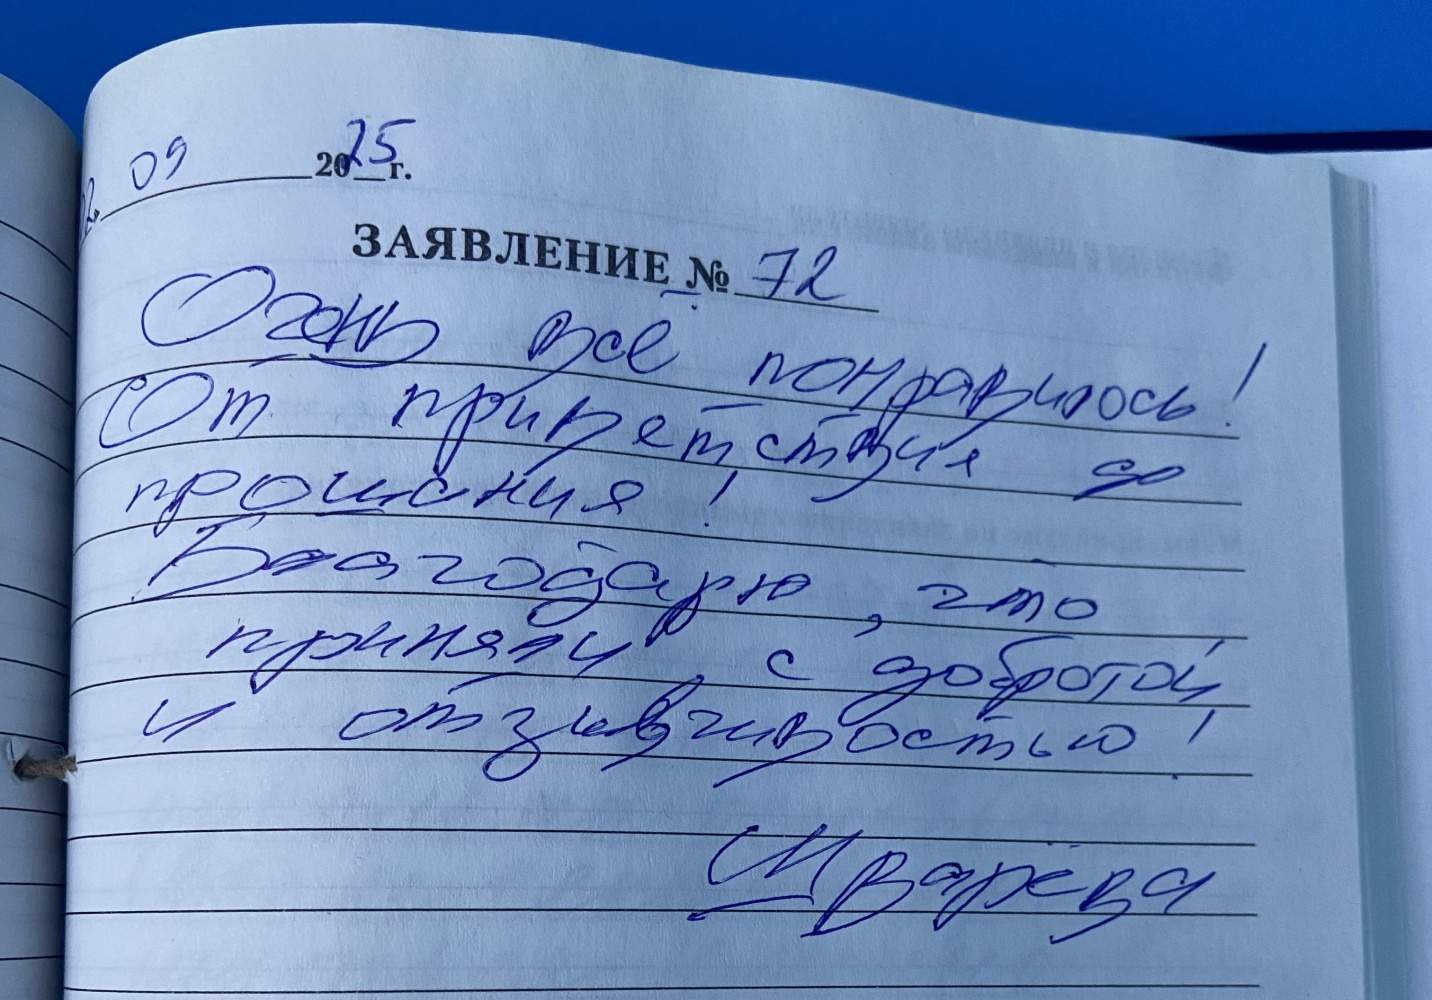 02. 09 2025г.
ЗАЯВЛЕНИЕ № 72
Очень всё понравилось!
От приветствия до
прощения!
Благодарю, что
приняли с добротой
и отзывчивостью!